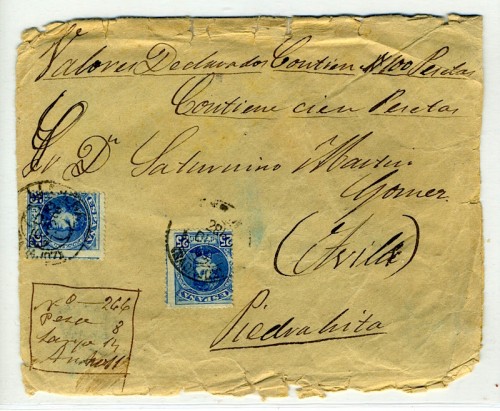 Valores Declarados Contien 100 Pesetas
Contiene cien Pesetas
Sr Dn Saturnino Martin
Gomez
(Avila)
Piedrahita
25 25
ESPAÑA
25 25
ESPAÑA
Nº 266
Peso 8
Largo 14
Ancho 11